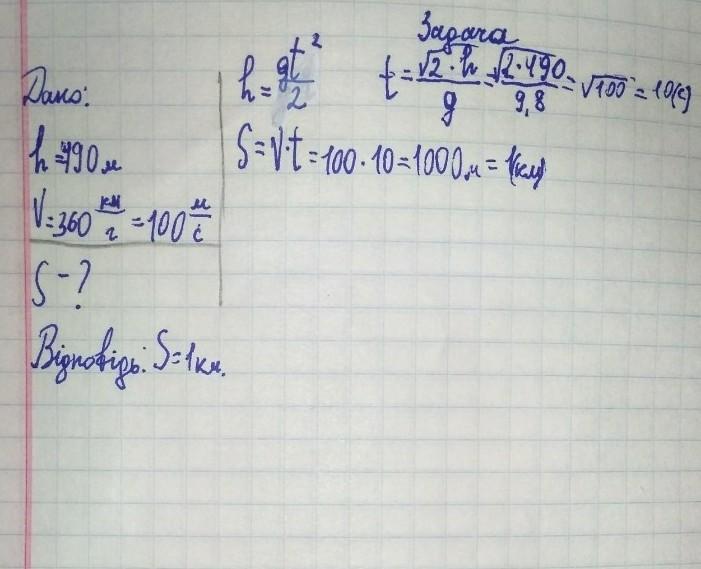 Задача
Дано:
h=490м
V=360 км/г =100 м/с
S-?
h= gt²/2
t= √2·h/g = √2·490/9,8 = √100 = 10(с)
S=V·t=100·10=1000м=1(км)
Відповідь: S=1км.